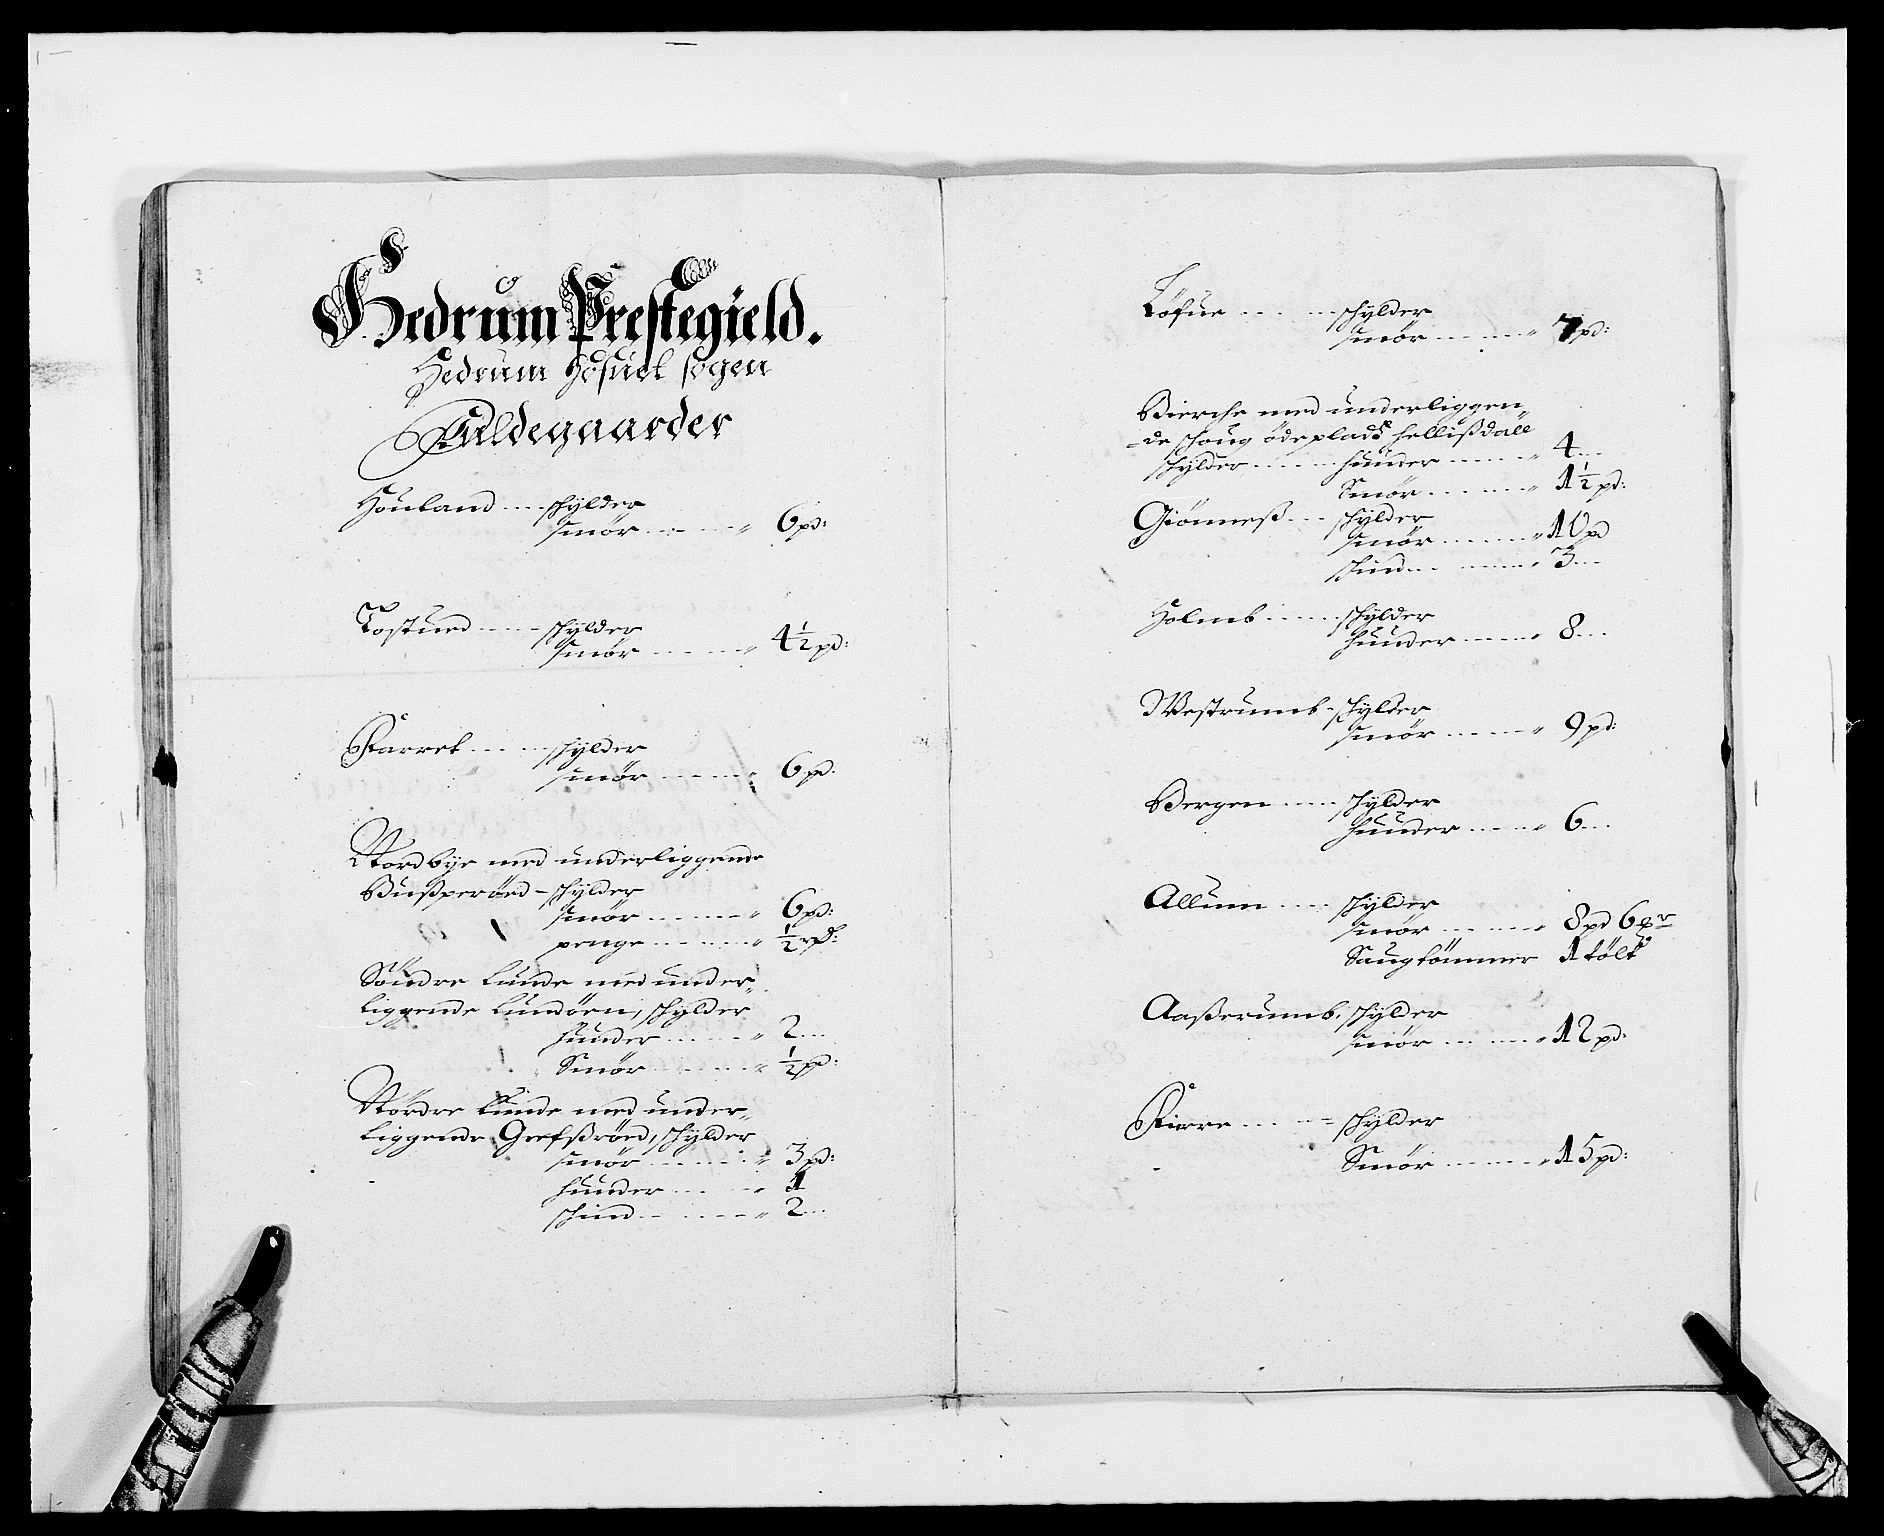 Hedrum Prestegield.
Hedrum Hofuet sogen
Fuldegaarder
Houland .... schylder
smør ........ 6 pd:
Tostued ..... schylder
smør ........ 4½ pd:
Farret ...... schylder
smør ........ 6 pd:
Nordbye med underliggende
Bussperöed - schylder
smør ........ 6 pd:
penge ....... ½ rdl:
Söndre Lunde med under„
liggende Lundöen, schylder
huuder ...... 2 ...
Smør ........ ½ pd:
Nordre Lunde med under„
liggende Grefsröed, schylder
smør ........ 3 pd:
huuder ...... 1
schind ...... 2 ...
Löfue ....... schylder
smør ........ 7 pd:
Bierche med underliggen„
„de schoug ödeplads hellißdall
schylder ...... huuder ...... 4 ...
Smør ........ 1½ pd:
Giönneß ... schylder
smør ........ 10 pd
schind ...... 3 ...
Holmb ...... schylder
huuder ...... 8 ...
Westrumb - schylder
smør ........ 9 pd:
Bergen ..... schylder
huuder ...... 6 ...
Allum ..... schylder
smør ........ 8 pd 6
Saugtömmer 1 tölt
Aaßerumb. schylder
smør ........ 12 pd:
Kierre ...... schylder
Smør ........ 15 pd: